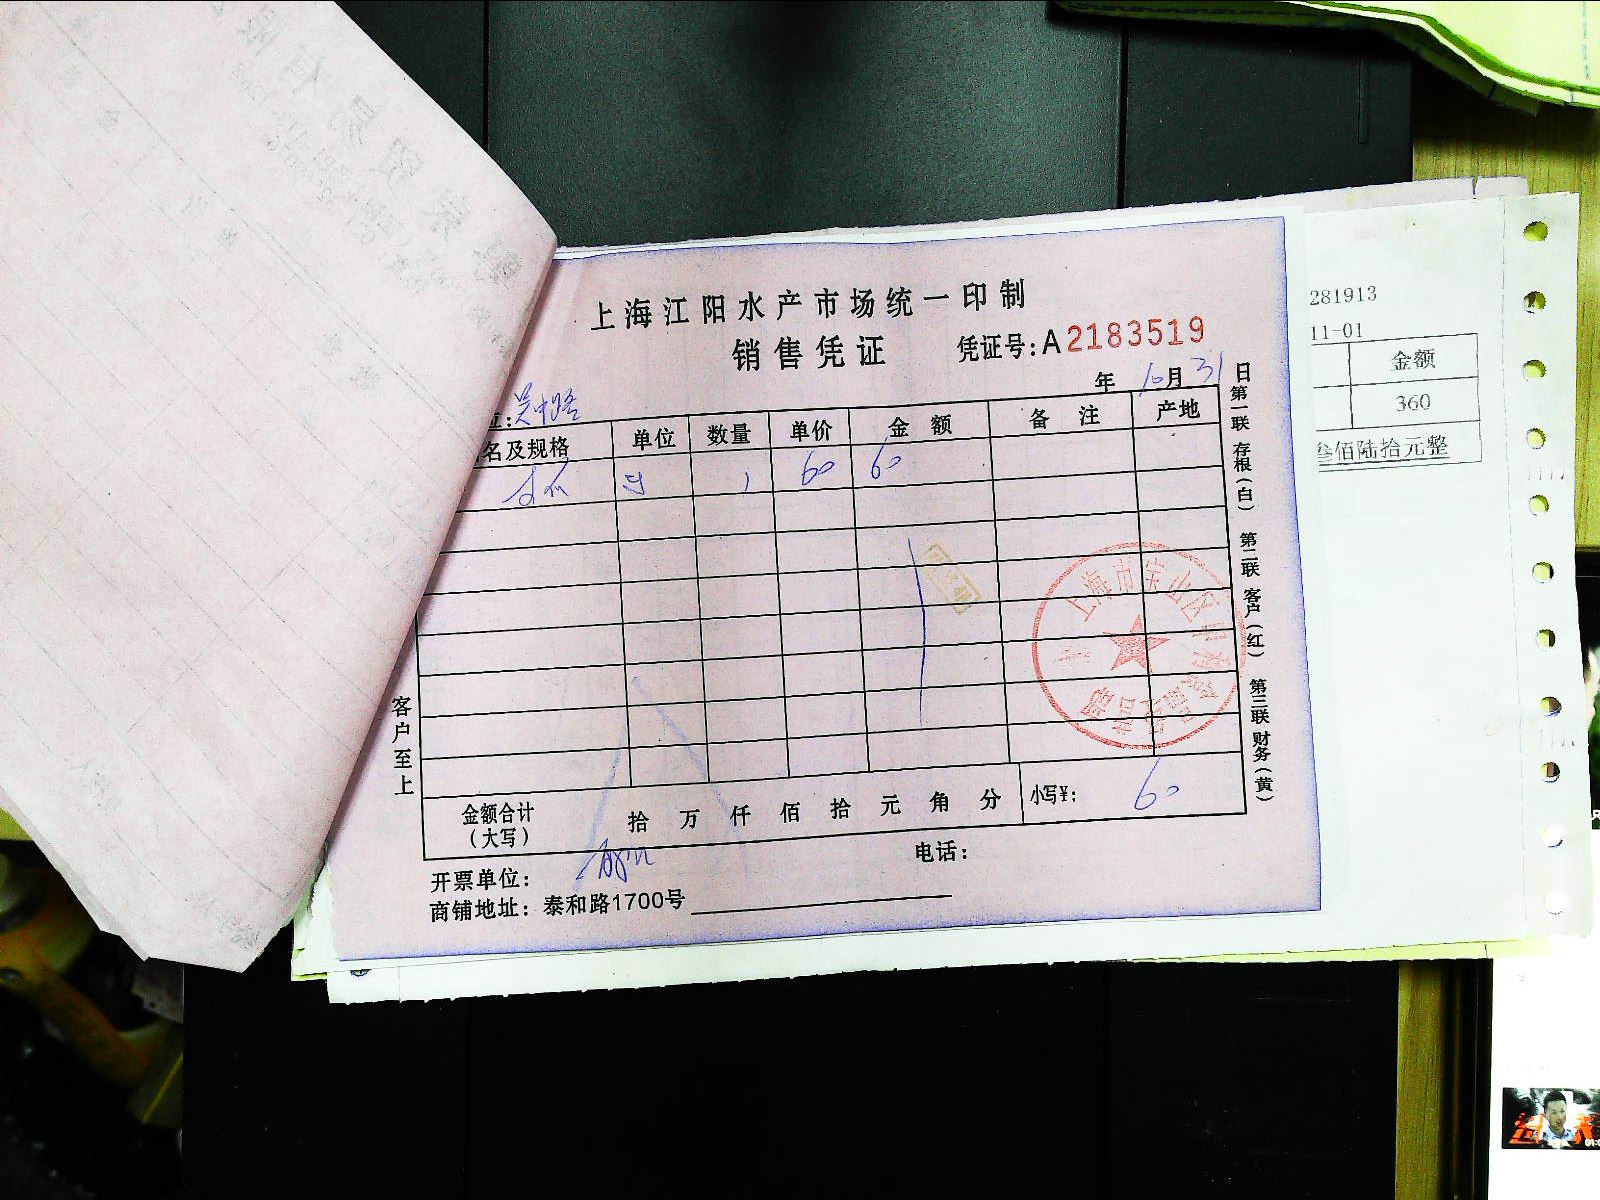 上海江阳水产市场统一印制
销售凭证 凭证号:A2183519
年 10月31日
位:吴中路
名及规格 单位 数量 单价 金额 备注 产地
1 60 60
金额合计(大写) 拾 万 仟 佰 拾 元 角 分 小写¥: 60
开票单位: 电话:
商铺地址: 泰和路1700号
客户至上
第一联 存根(白) 第二联 客户(红) 第三联 财务(黄)
上海市宝山区
281913
11-01
金额
360
叁佰陆拾元整